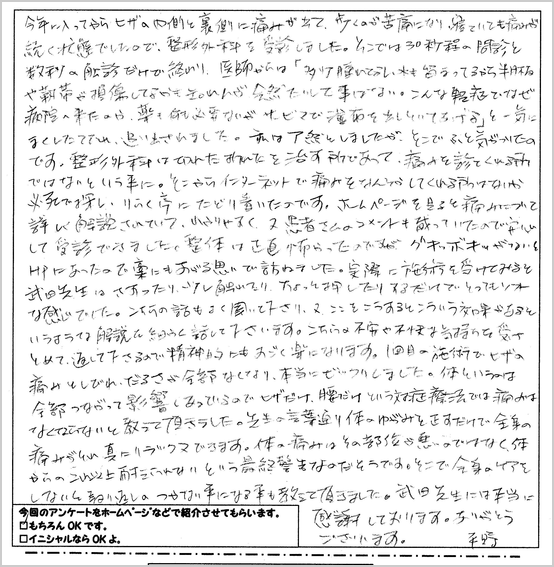 今年に入ってからヒザの内側と裏側に痛みが出て、歩くのが苦痛になり、寝ていても痛みが
続く状態でしたので、整形外科を受診しました。そこでは30秒程の問診と
数秒の触診だけで終わり、医師からは「多少腫れてるし水も溜ってるから半月板
や靭帯が損傷してるかも知れんが全然たいした事はない。こんな軽症でなぜ
病院へ来たのか、薬も何も必要ないがサービスで湿布を出しといてあげる」と一気に
まくしたてられ、追い出されました。私はア然としましたが、そこでふと気がついたの
です。整形外科は切れた折れたを治す所であって、痛みを診てくれる所
ではないという事に。そこからインターネットで痛みをなんとかしてくれる所はないか
必死で探し、りらく亭にたどり着いたのです。ホームページを見ると痛みについて
詳しく解説されていて、わかりやすく、又患者さんのコメントも載っていたので安心
して受診できました。整体は正直怖かったのですが、ボキッボキッがないと
HPにあったので藁にもすがる思いで訪ねました。実際に施術を受けてみると
武田先生はさすったり、少し触れたり、ちょっと押したりするだけでとってもソフト
な感じでした。こちらの話もよく聞いて下さり、又、ここをこうするとこういう効果があると
いうような解説を細かく話して下さいます。こちらの不安や不快な気持ちを受け
とめて、返して下さるので精神的にもすごく楽になります。1回目の施術でヒザの
痛みとしびれ、だるさが全部なくなり、本当にビックリしました。体というのは
全部つながって影響しあっているのでヒザだけ、腰だけという対症療法では痛みは
なくならないと教えて頂きました。先生の言葉通り体のゆがみを正すだけで全身の
痛みがとれ真にリラックスできます。体の痛みはその部位が悪いのではなく体
からのこれ以上耐えられないという最終警告なのだそうです。そこで全身のケアを
しないと取り返しのつかない事になる事も教えて頂きました。武田先生には本当に
感謝しております。ありがとう
ございます。 平野
今回のアンケートをホームページなどで紹介させてもらいます。
□もちろんOKです。
□イニシャルならOKよ。